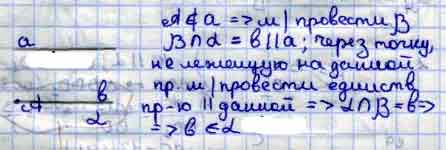 a
A ∉ a => м/провести β
β∩α = в||a; через точку,
не лежащую на данной
пр. м/провести единств.
пр-ю || данной => α∩β=в=>
=> в ∈ α
A
в
α